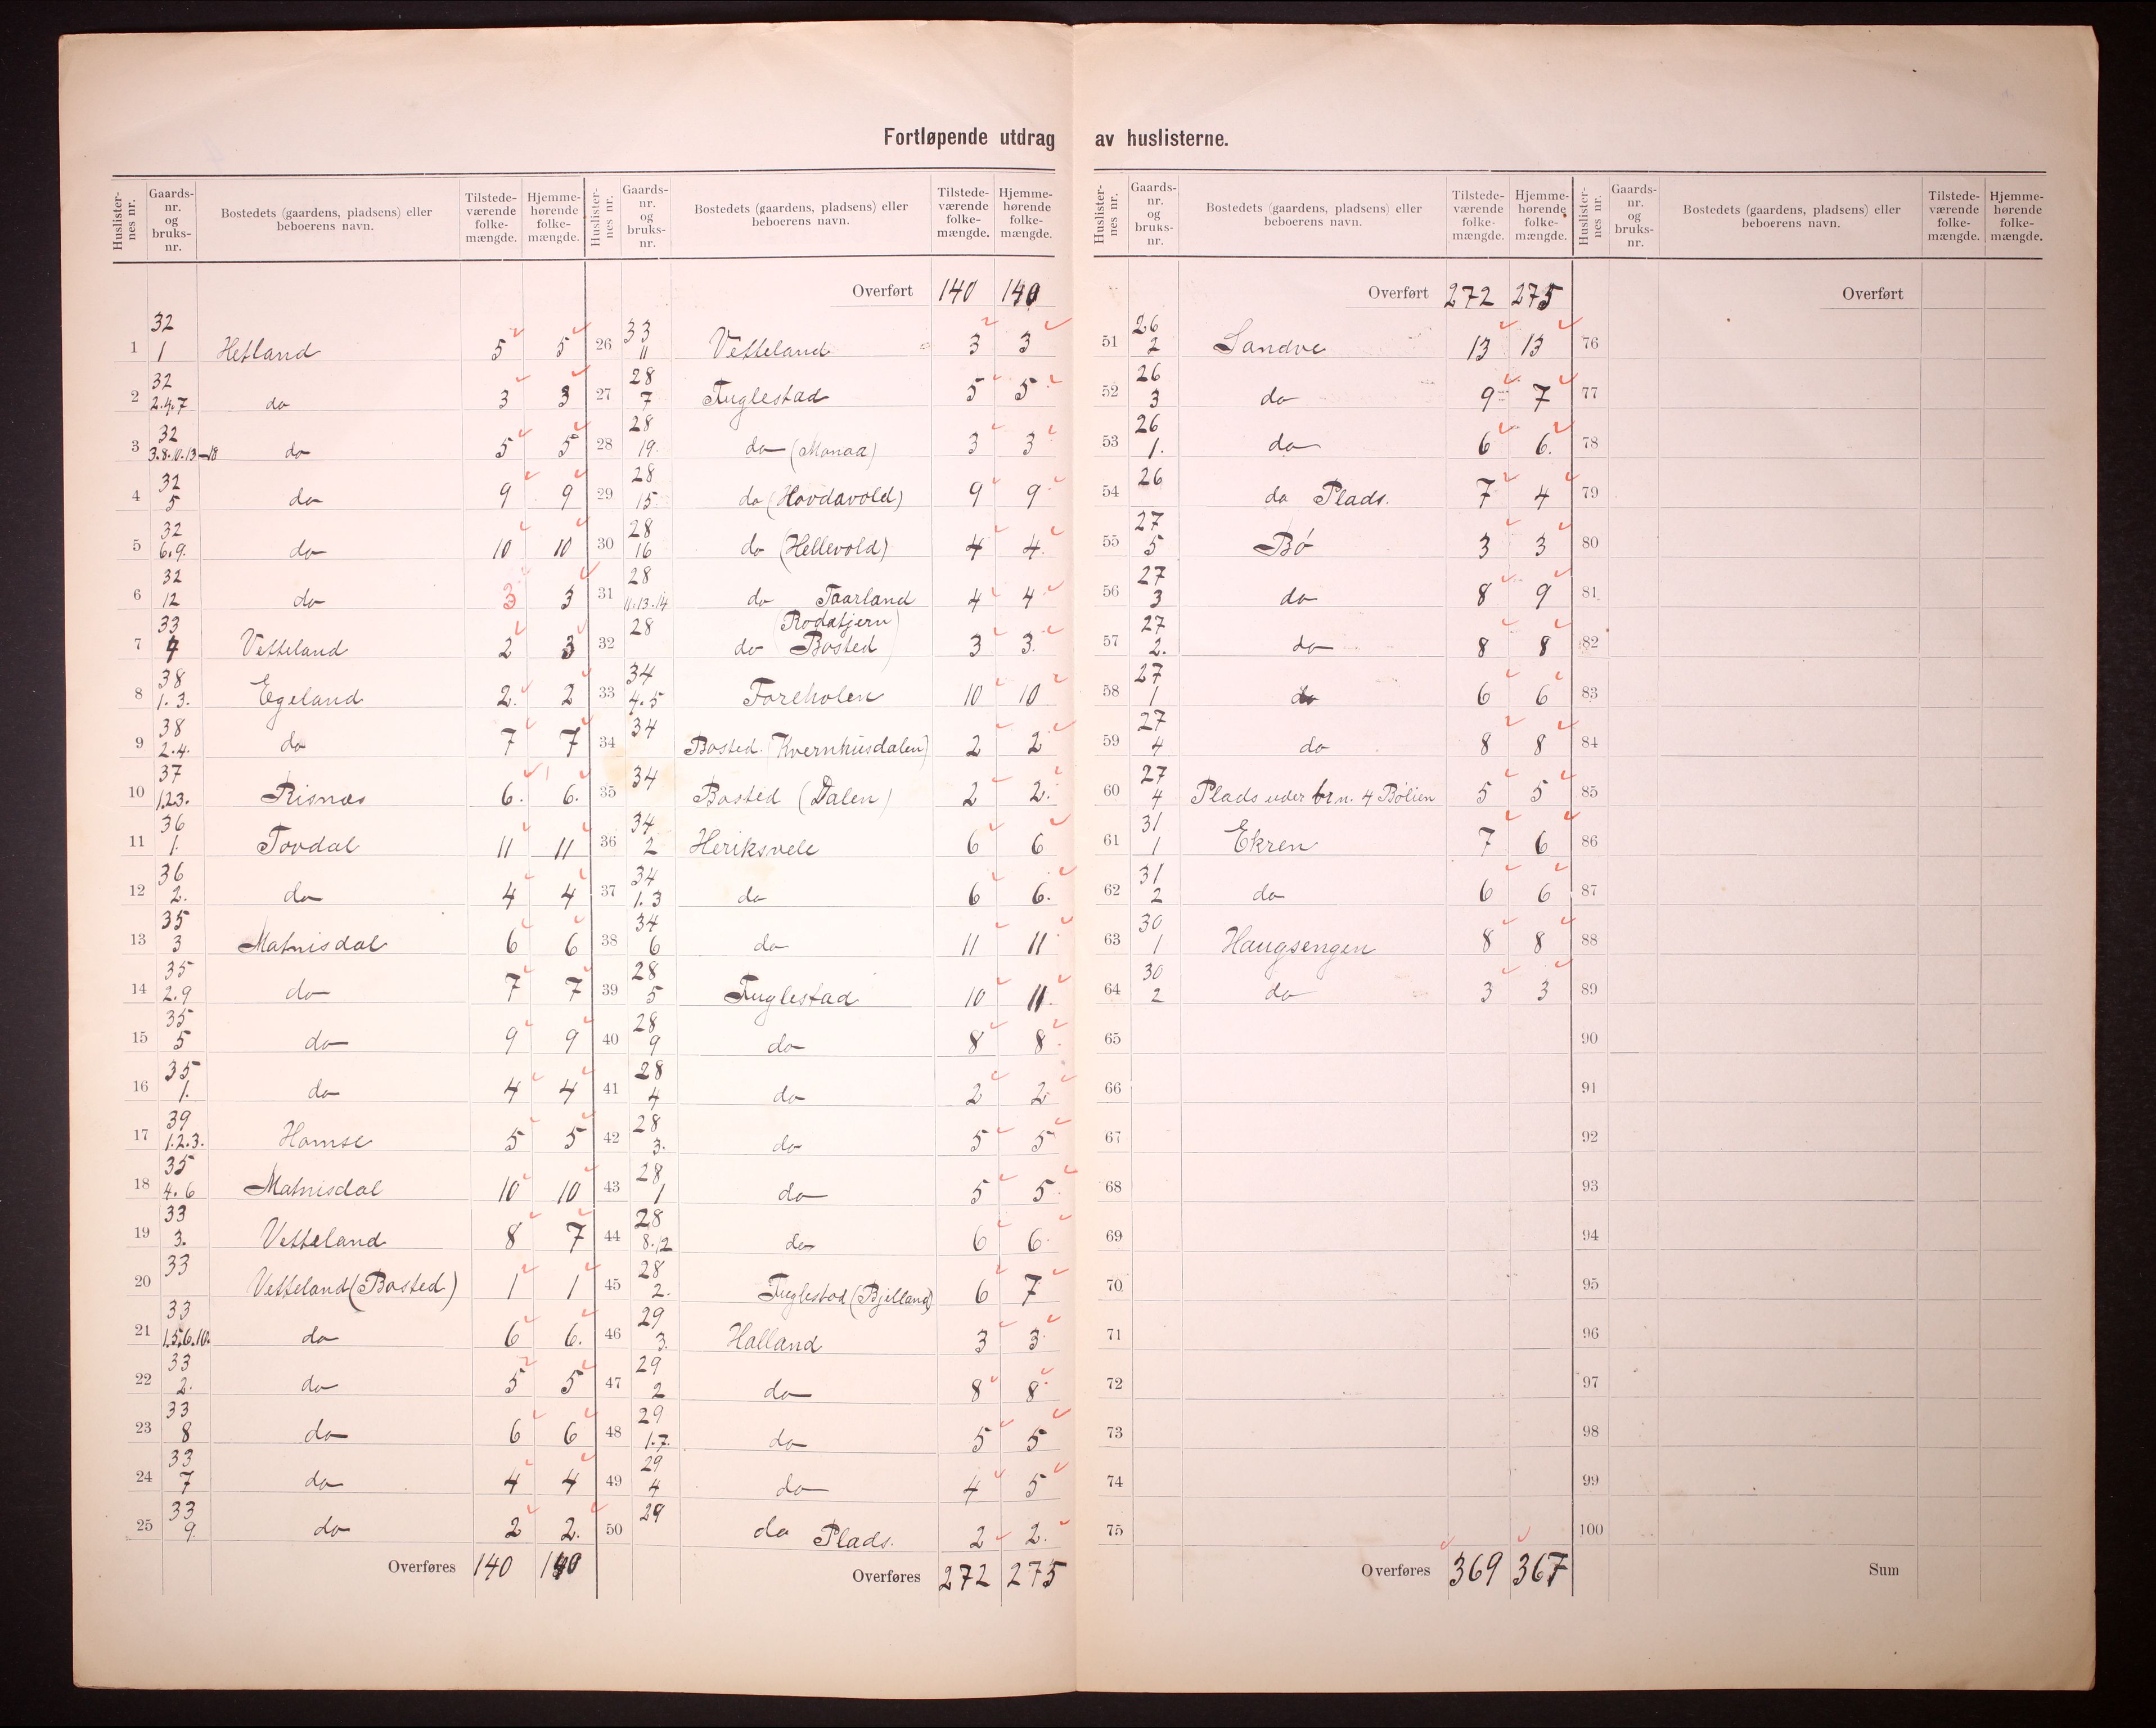 Fortløpende utdrag av huslisterne.
Huslister-nes nr. Gaards-nr. og bruks-nr. Bostedets (gaardens, pladsens) eller beboerens navn. Tilstede-værende folke-mængde. Hjemme-hørende folke-mængde.
1 32 1 Hetland 5 5
2 32 2.4.7 do 3 3
3 32 3.8.10.13-18 do 5 5
4 32 5 do 9 9
5 32 6.9. do 10 10
6 32 12 do 3 3
7 33 4 Vetteland 2 3
8 38 1.3. Egeland 2. 2
9 38 2.4. do 7 7
10 37 1.2.3. Risnæs 6. 6.
11 36 1. Tovdal 11 11
12 36 2. do 4 4
13 35 3 Matnisdal 6 6
14 35 2.9 do 7 7
15 35 5 do 9 9
16 35 1. do 4 4
17 39 1.2.3. Homse 5 5
18 35 4.6 Matnisdal 10 10
19 33 3. Vetteland 8 7
20 33 Vetteland (Bosted) 1 1
21 33 1.5.6.10. do 6 6.
22 33 2. do 5 5
23 33 8 do 6 6
24 33 7 do 4 4
25 33 9. do 2 2.
Overføres 140 140
Huslister-nes nr. Gaards-nr. og bruks-nr. Bostedets (gaardens, pladsens) eller beboerens navn. Tilstede-værende folke-mængde. Hjemme-hørende folke-mængde.
Overført 140 140
26 33 11 Vetteland 3 3
27 28 7 Fuglestad 5 5
28 28 19. do (Monaa) 3 3
29 28 15 do (Hovdavold) 9 9
30 28 16 do (Hellevold) 4 4.
31 28 11.13.14 do Taarland 4 4
32 28 do (Rodatjern) Bosted 3 3.
33 34 4.5 Foreholen 10 10
34 34 Bosted. (Kvernhusdalen) 2 2
35 34 Bosted (Dalen) 2 2.
36 34 2 Heriksvele 6 6
37 34 1.3 do 6 6.
38 34 6 do 11 11
39 28 5 Fuglestad 10 11.
40 28 9 do 8 8
41 28 4 do 2 2
42 28 3. do 5 5
43 28 1 do 5 5
44 28 8.12 do 6 6
45 28 2. Fuglestad (Bjelland) 6 7
46 29 3. Halland 3 3
47 29 2 do 8 8
48 29 1.7. do 5 5
49 29 4 do 4 5
50 29 do Plads. 2 2.
Overføres 272 275
Huslister-nes nr. Gaards-nr. og bruks-nr. Bostedets (gaardens, pladsens) eller beboerens navn. Tilstede-værende folke-mængde. Hjemme-hørende folke-mængde.
Overført 272 275
51 26 2 Sandve 13 13
52 26 3 do 9 7
53 26 1. do 6 6.
54 26 do Plads. 7 4
55 27 5 Bø 3 3
56 27 3 do 8 9
57 27 2. do 8 8
58 27 1 do 6 6
59 27 4 do 8 8
60 27 4 Plads under brn. 4 Bølien 5 5
61 31 1 Ekren 7 6
62 31 2 do 6 6
63 30 1 Haugsengen 8 8
64 30 2 do 3 3
65
66
67
68
69
70
71
72
73
74
75
Overføres 369 367
Huslister-nes nr. Gaards-nr. og bruks-nr. Bostedets (gaardens, pladsens) eller beboerens navn. Tilstede-værende folke-mængde. Hjemme-hørende folke-mængde.
Overført
76
77
78
79
80
81
82
83
84
85
86
87
88
89
90
91
92
93
94
95
96
97
98
99
100
Sum